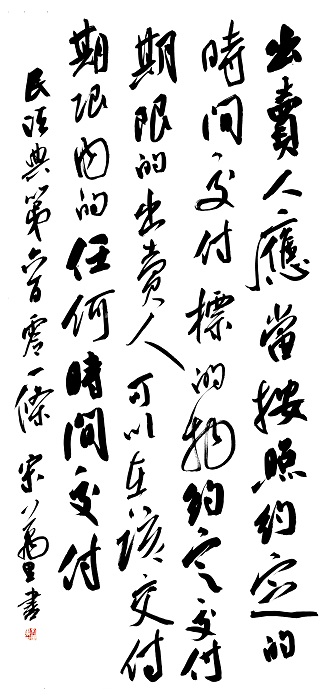 出賣人應當按照約定的
時间交付標的物約定交付
期限的出賣人可以在該交付
期限内的任何時間交付
民法典第六百零一條 宋萬里書